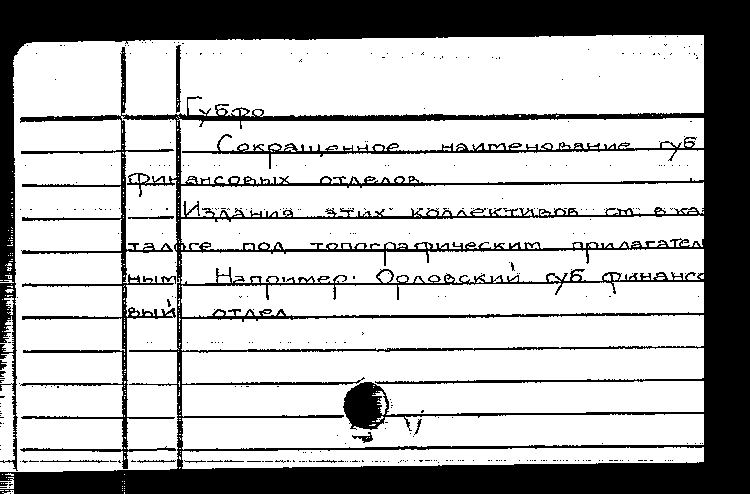 Губфо
Сокращенное наименование губ
финансовых отделов
Издания этих коллективов см. в ка
талоге под топографическим прилагатель
ным. Например: Орловский губ финансо
вый отдел